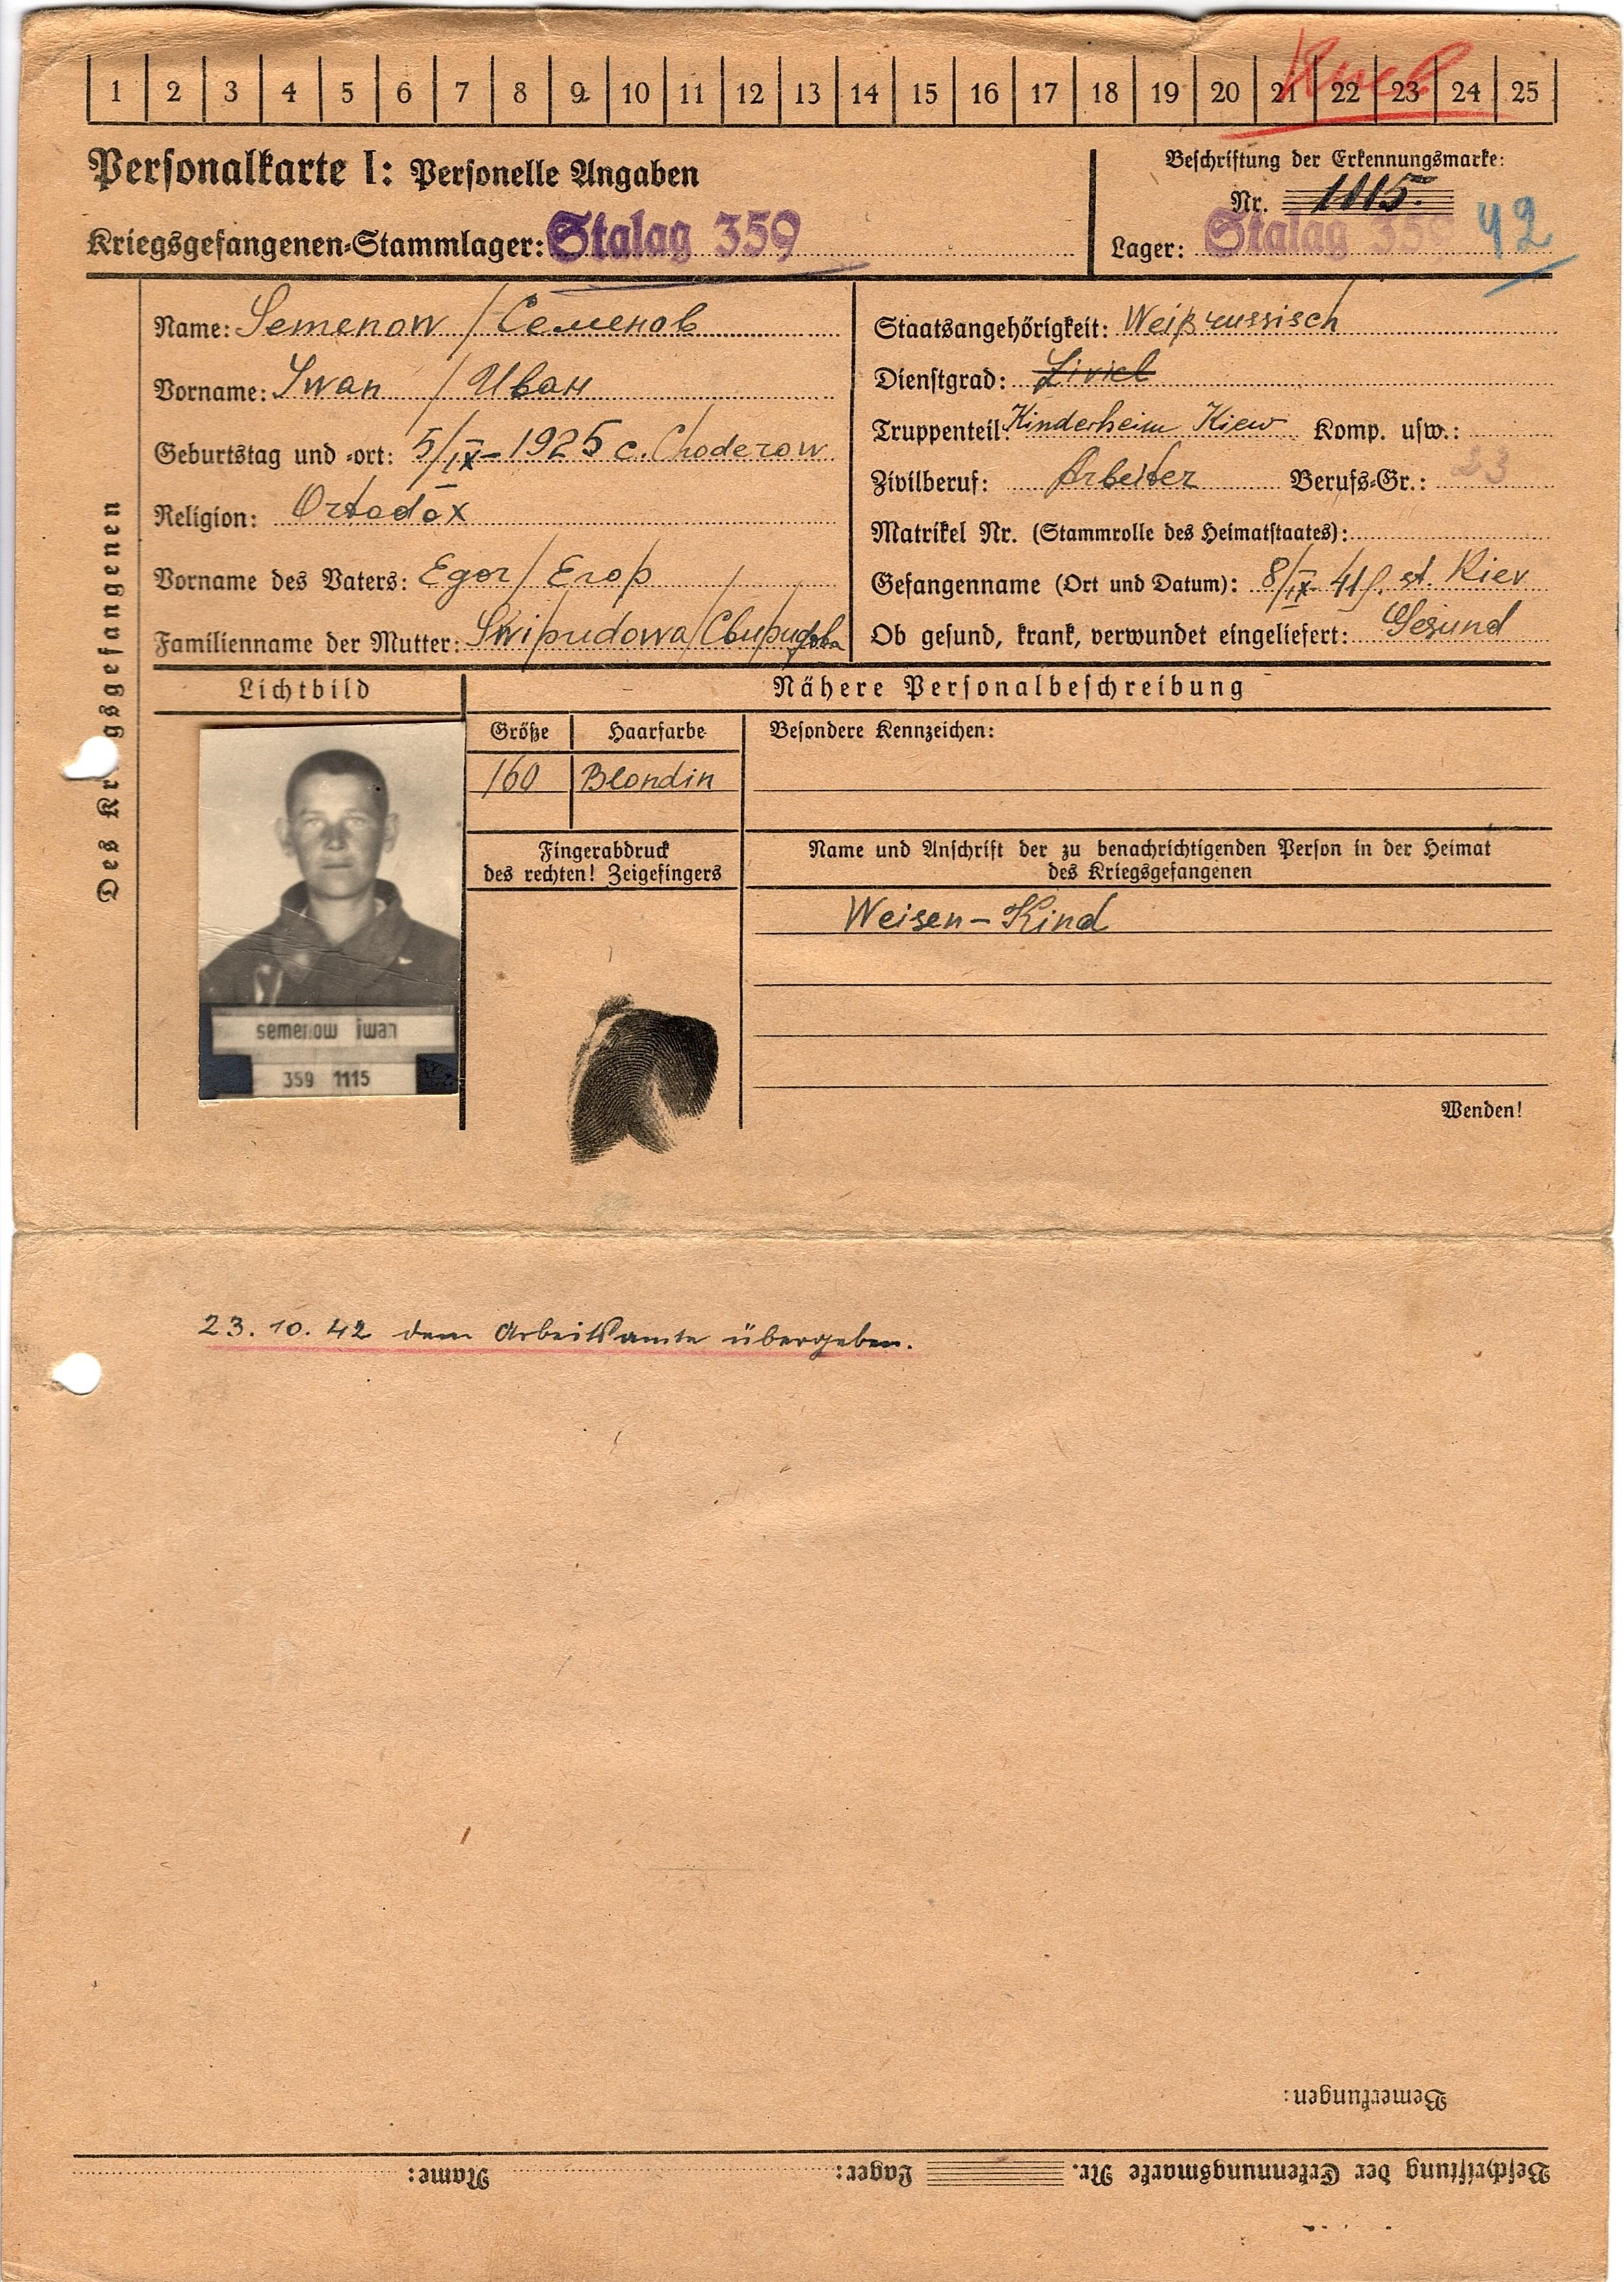 1 2 3 4 5 6 7 8 9 10 11 12 13 14 15 16 17 18 19 20 21 22 23 24 25
Personalkarte I: Personelle Angaben
Kriegsgefangenen-Stammlager: Stalag 359
Beschriftung der Erkennungsmarke:
Nr. 1115.
Lager: Stalag 359 42
Des Kr gsgefangenen
Name: Semenow / Семенов
Vorname: Iwan / Иван
Geburtstag und -ort: 5/IX-1925 c. Choderow
Religion: Ortodox
Vorname des Vaters: Egor / Егор
Familienname der Mutter: Swiridowa / Свиридова
Staatsangehörigkeit: Weißrussisch
Dienstgrad: Zivil
Truppenteil: Kinderheim Kiew Komp. usw.:
Zivilberuf: Arbeiter Berufs-Gr.: 33
Matrikel Nr. (Stammrolle des Heimatstaates):
Gefangenname (Ort und Datum): 8/IX-41 st. Kiev
Ob gesund, krank, verwundet eingeliefert: Gesund
Lichtbild
Nähere Personalbeschreibung
Größe Haarfarbe
160 Blondin
Besondere Kennzeichen:
Fingerabdruck
des rechten! Zeigefingers
Name und Anschrift der zu benachrichtigenden Person in der Heimat
des Kriegsgefangenen
Weisen-Kind
semenow iwan
359 1115
Wenden!
23. 10. 42 dem Arbeitsamte übergeben.
Bemerkungen:
Beschriftung der Erkennungsmarke Nr. Lager: Name: